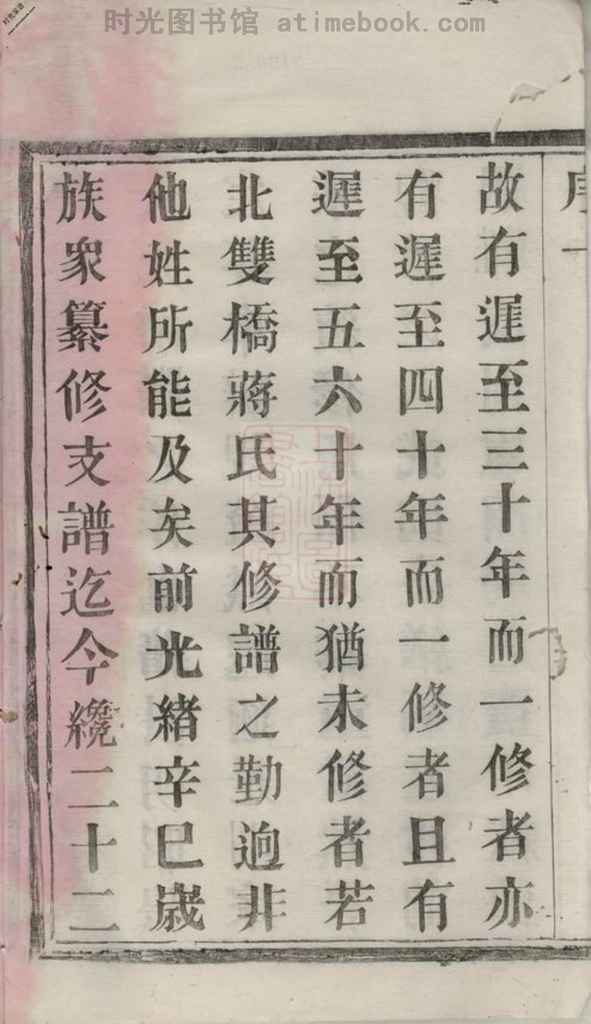 时光图书馆 atimebook.com
序一
故有遲至三十年而一修者亦
有遲至四十年而一修者且有
遲至五六十年而猶未修者若
北雙橋蔣氏其修譜之勤逈非
他姓所能及矣前光緒辛巳歲
族衆纂修支譜迄今纔二十二